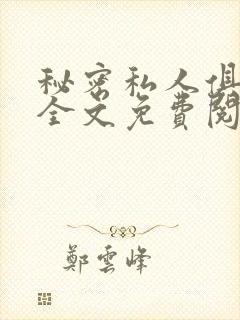 秘密私人俱
全文免費閱
鄭雲峰